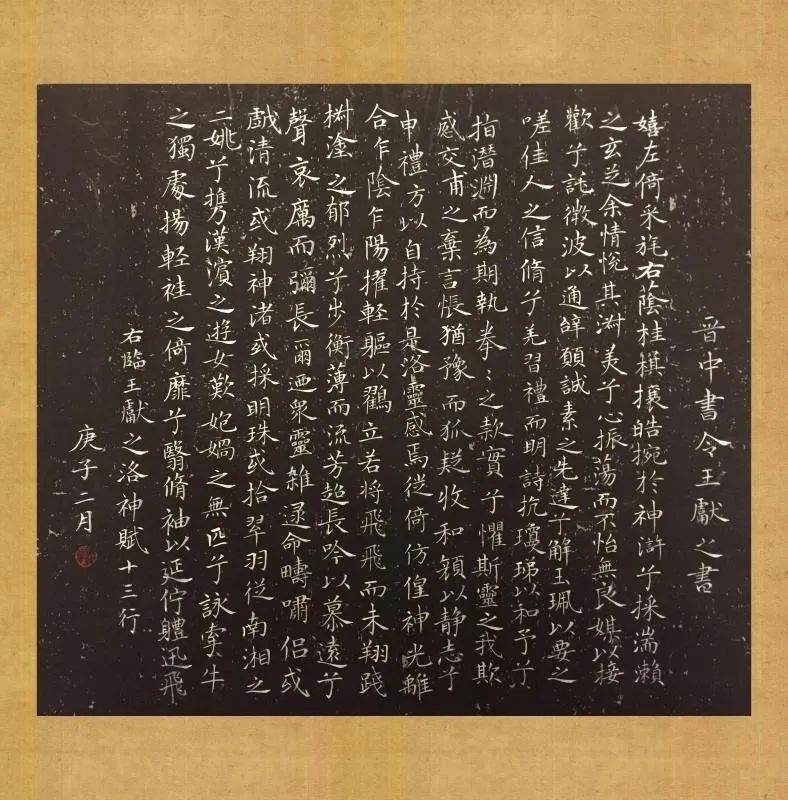 晉中書令王獻之書
嬉左倚采旄右蔭桂旗攘皓捥於神滸兮採湍瀨
之玄芝余情悅其淑美兮心振蕩而不怡無良媒以接
歡兮託微波以通辭願誠素之先達兮解玉珮以要之
嗟佳人之信脩兮羌習禮而明詩抗瓊珶以和予兮
指潛淵而為期執拳〻之款實兮懼斯靈之我欺
感交甫之棄言悵猶豫而狐疑收和顏以靜志兮
申禮方以自持於是洛靈感焉徙倚仿偟神光離
合乍陰乍陽擢輕軀以鶴立若將飛飛而未翔踐
椒塗之郁烈兮步衡薄而流芳超長吟以慕遠兮
聲哀厲而彌長爾迺眾靈雜遝命疇嘯侶或
戲清流或翔神渚或採明珠或拾翠羽從南湘之
二姚兮攜漢濱之遊女歎匏媧之無匹兮詠牽牛
之獨處揚輕袿之倚靡兮翳脩袖以延佇體迅飛
右臨王獻之洛神賦十三行
庚子二月